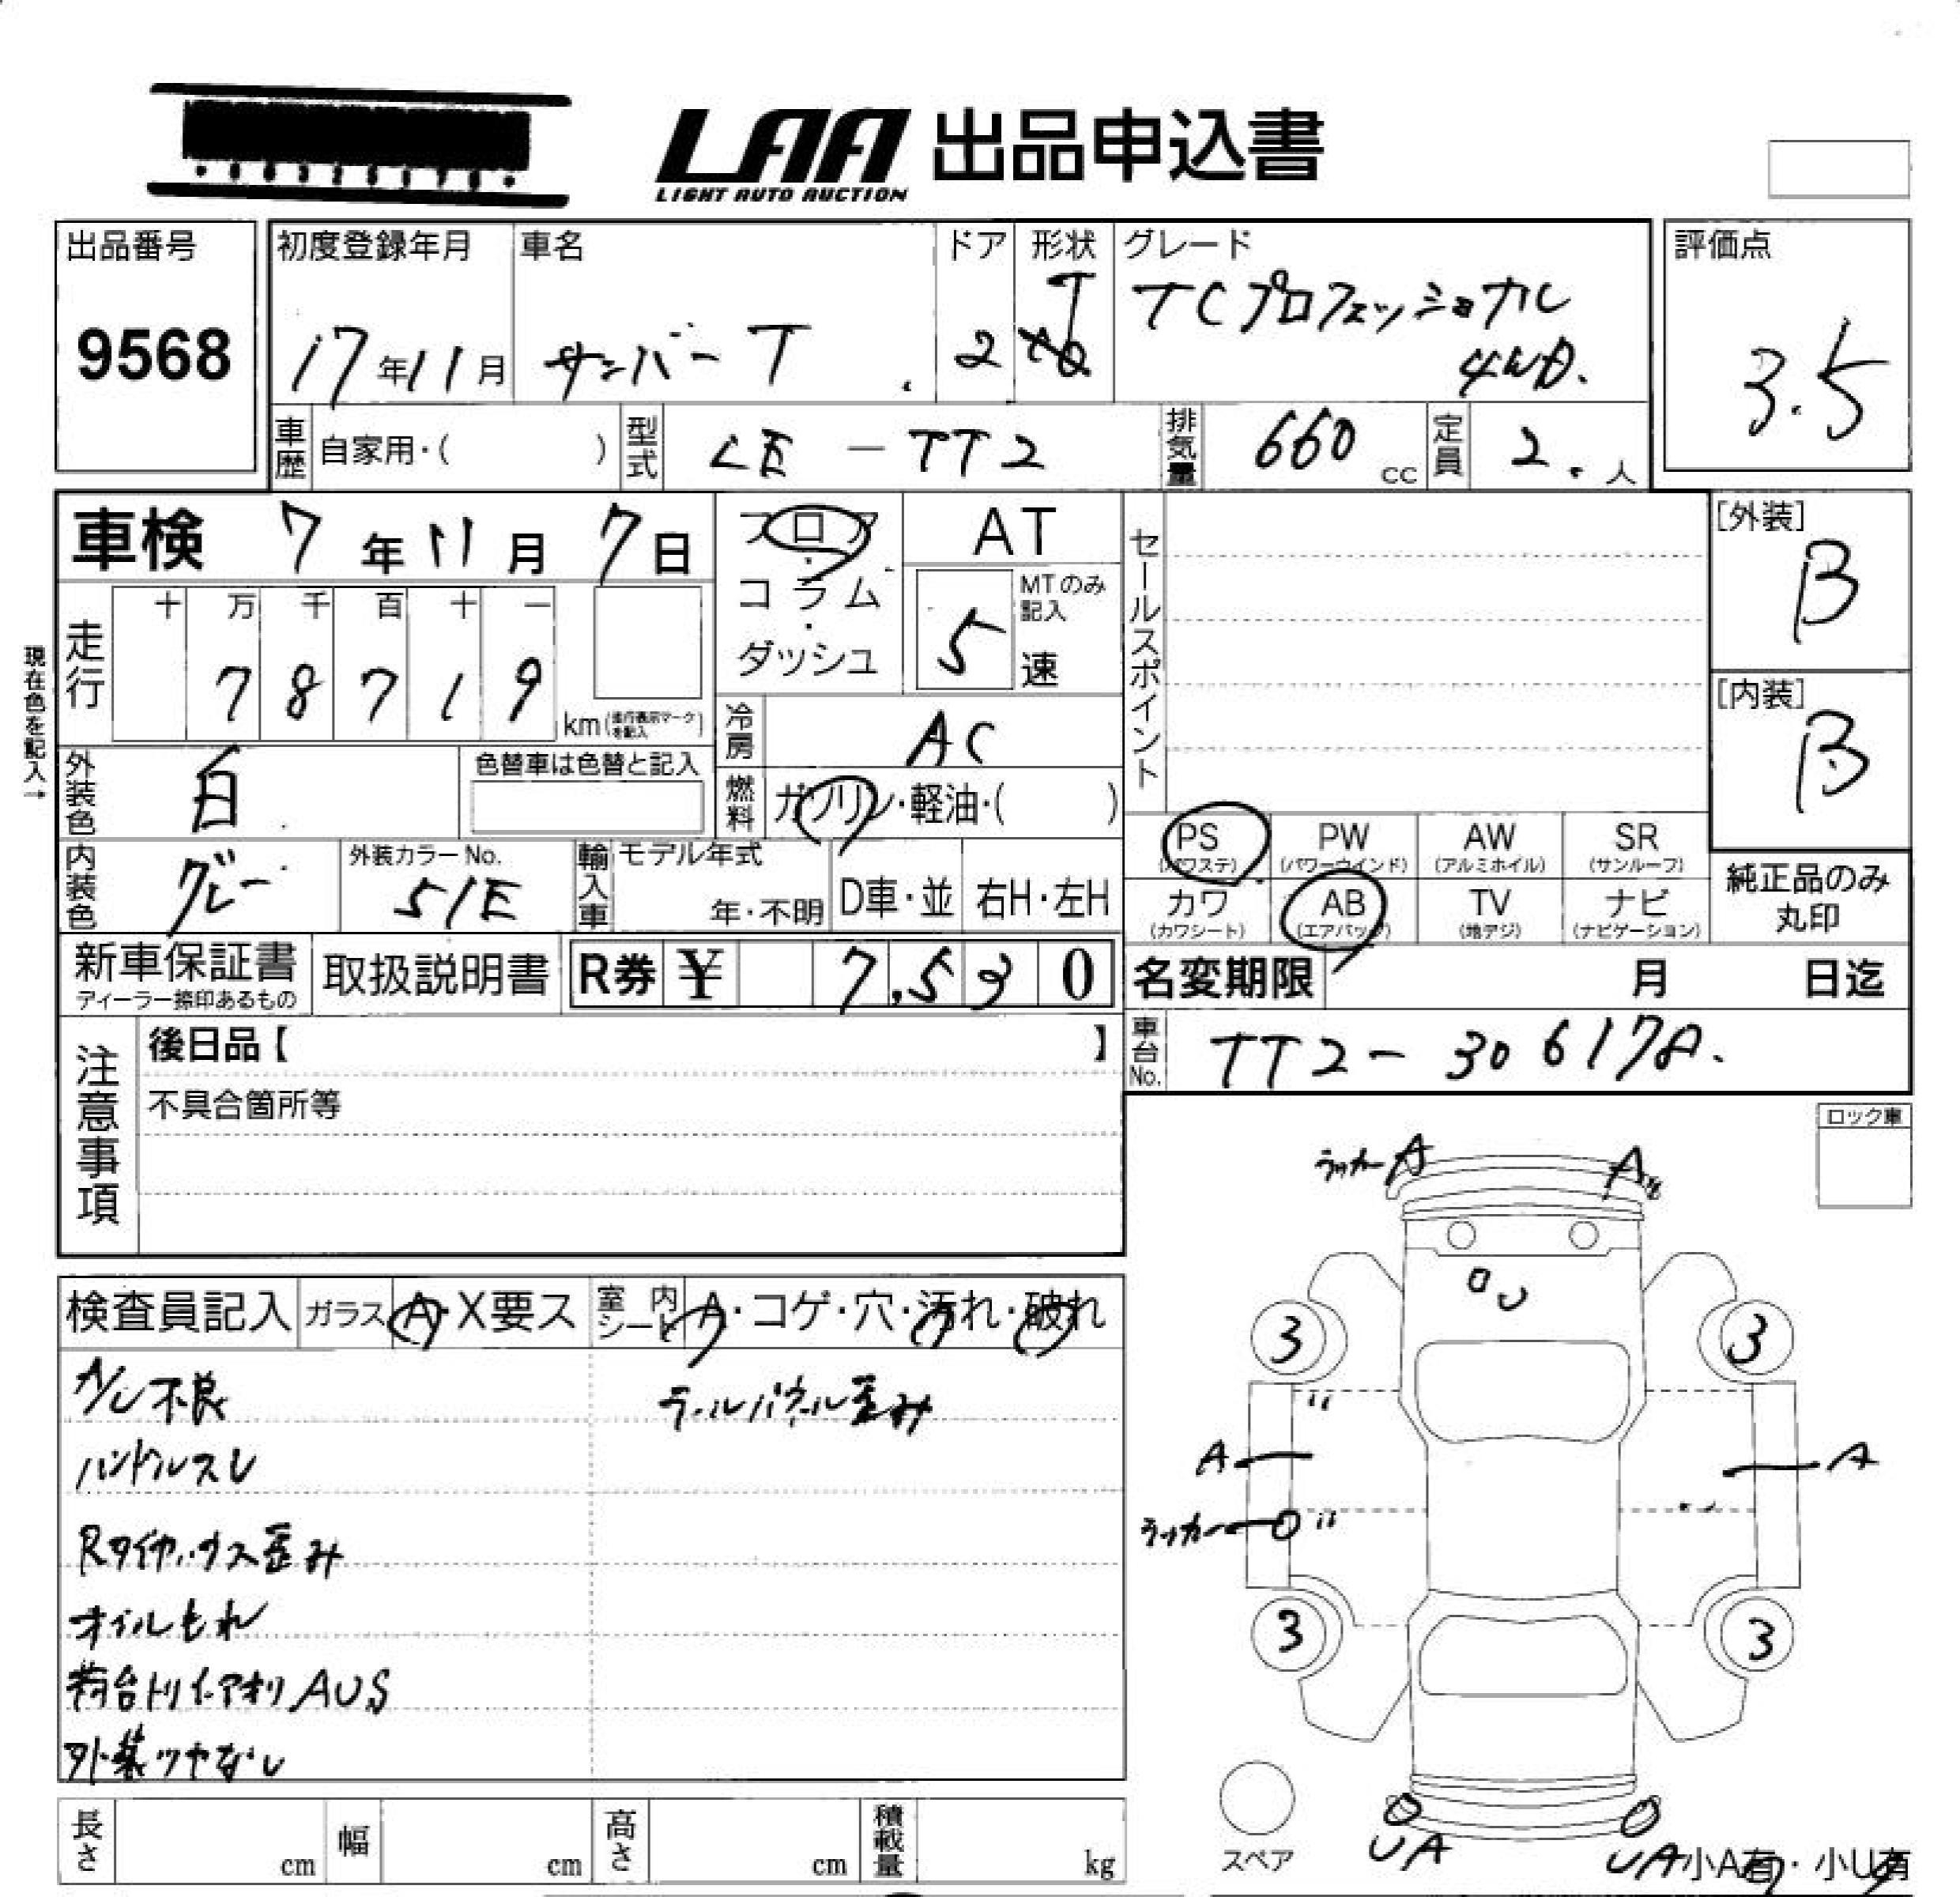 LAA 出品申込書
LIGHT AUTO AUCTION
出品番号
9568
初度登録年月
17年11月
車名
サンバーT
ドア
2
形状
T
グレード
TCプロフェッショナル
4WD.
評価点
3.5
車歴
自家用・( )
型式
LE-TT2
排気量
660 cc
定員
2.人
車検 7年11月7日
現在色を記入→
走行
十 万 千 百 十 一
7 8 7 1 9
km(走行表示マークを記入)
フロア・コラム・ダッシュ
AT
MTのみ記入
5 速
冷房
AC
燃料
ガソリン・軽油・( )
外装色
白
色替車は色替と記入
内装色
グレー
外装カラーNo.
51E
輸入車
モデル年式
年・不明
D車・並
右H・左H
セールスポイント
[外装]
B
[内装]
B
PS (パワステ)
PW (パワーウインド)
AW (アルミホイル)
SR (サンルーフ)
カワ (カワシート)
AB (エアバック)
TV (地デジ)
ナビ (ナビゲーション)
純正品のみ
丸印
新車保証書
ディーラー捺印あるもの
取扱説明書
R券 ¥ 7,530
名変期限 月 日迄
注意事項
後日品【 】
不具合箇所等
車台No.
TT2-30617
ロック車
検査員記入
ガラス
A・X要ス
室内シート
A・コゲ・穴・汚れ・破れ
A/C不良
テールパネル歪み
ハンドルスレ
Rタイヤハウス歪み
オイルもれ
荷台トリイ・アオリAUS
外装ツヤなし
ラッカー A
A
U
3
3
〃
A
A
ラッカー
〃
3
3
スペア
UA
UA
小A有・小U有
長さ cm
幅 cm
高さ cm
積載量 kg